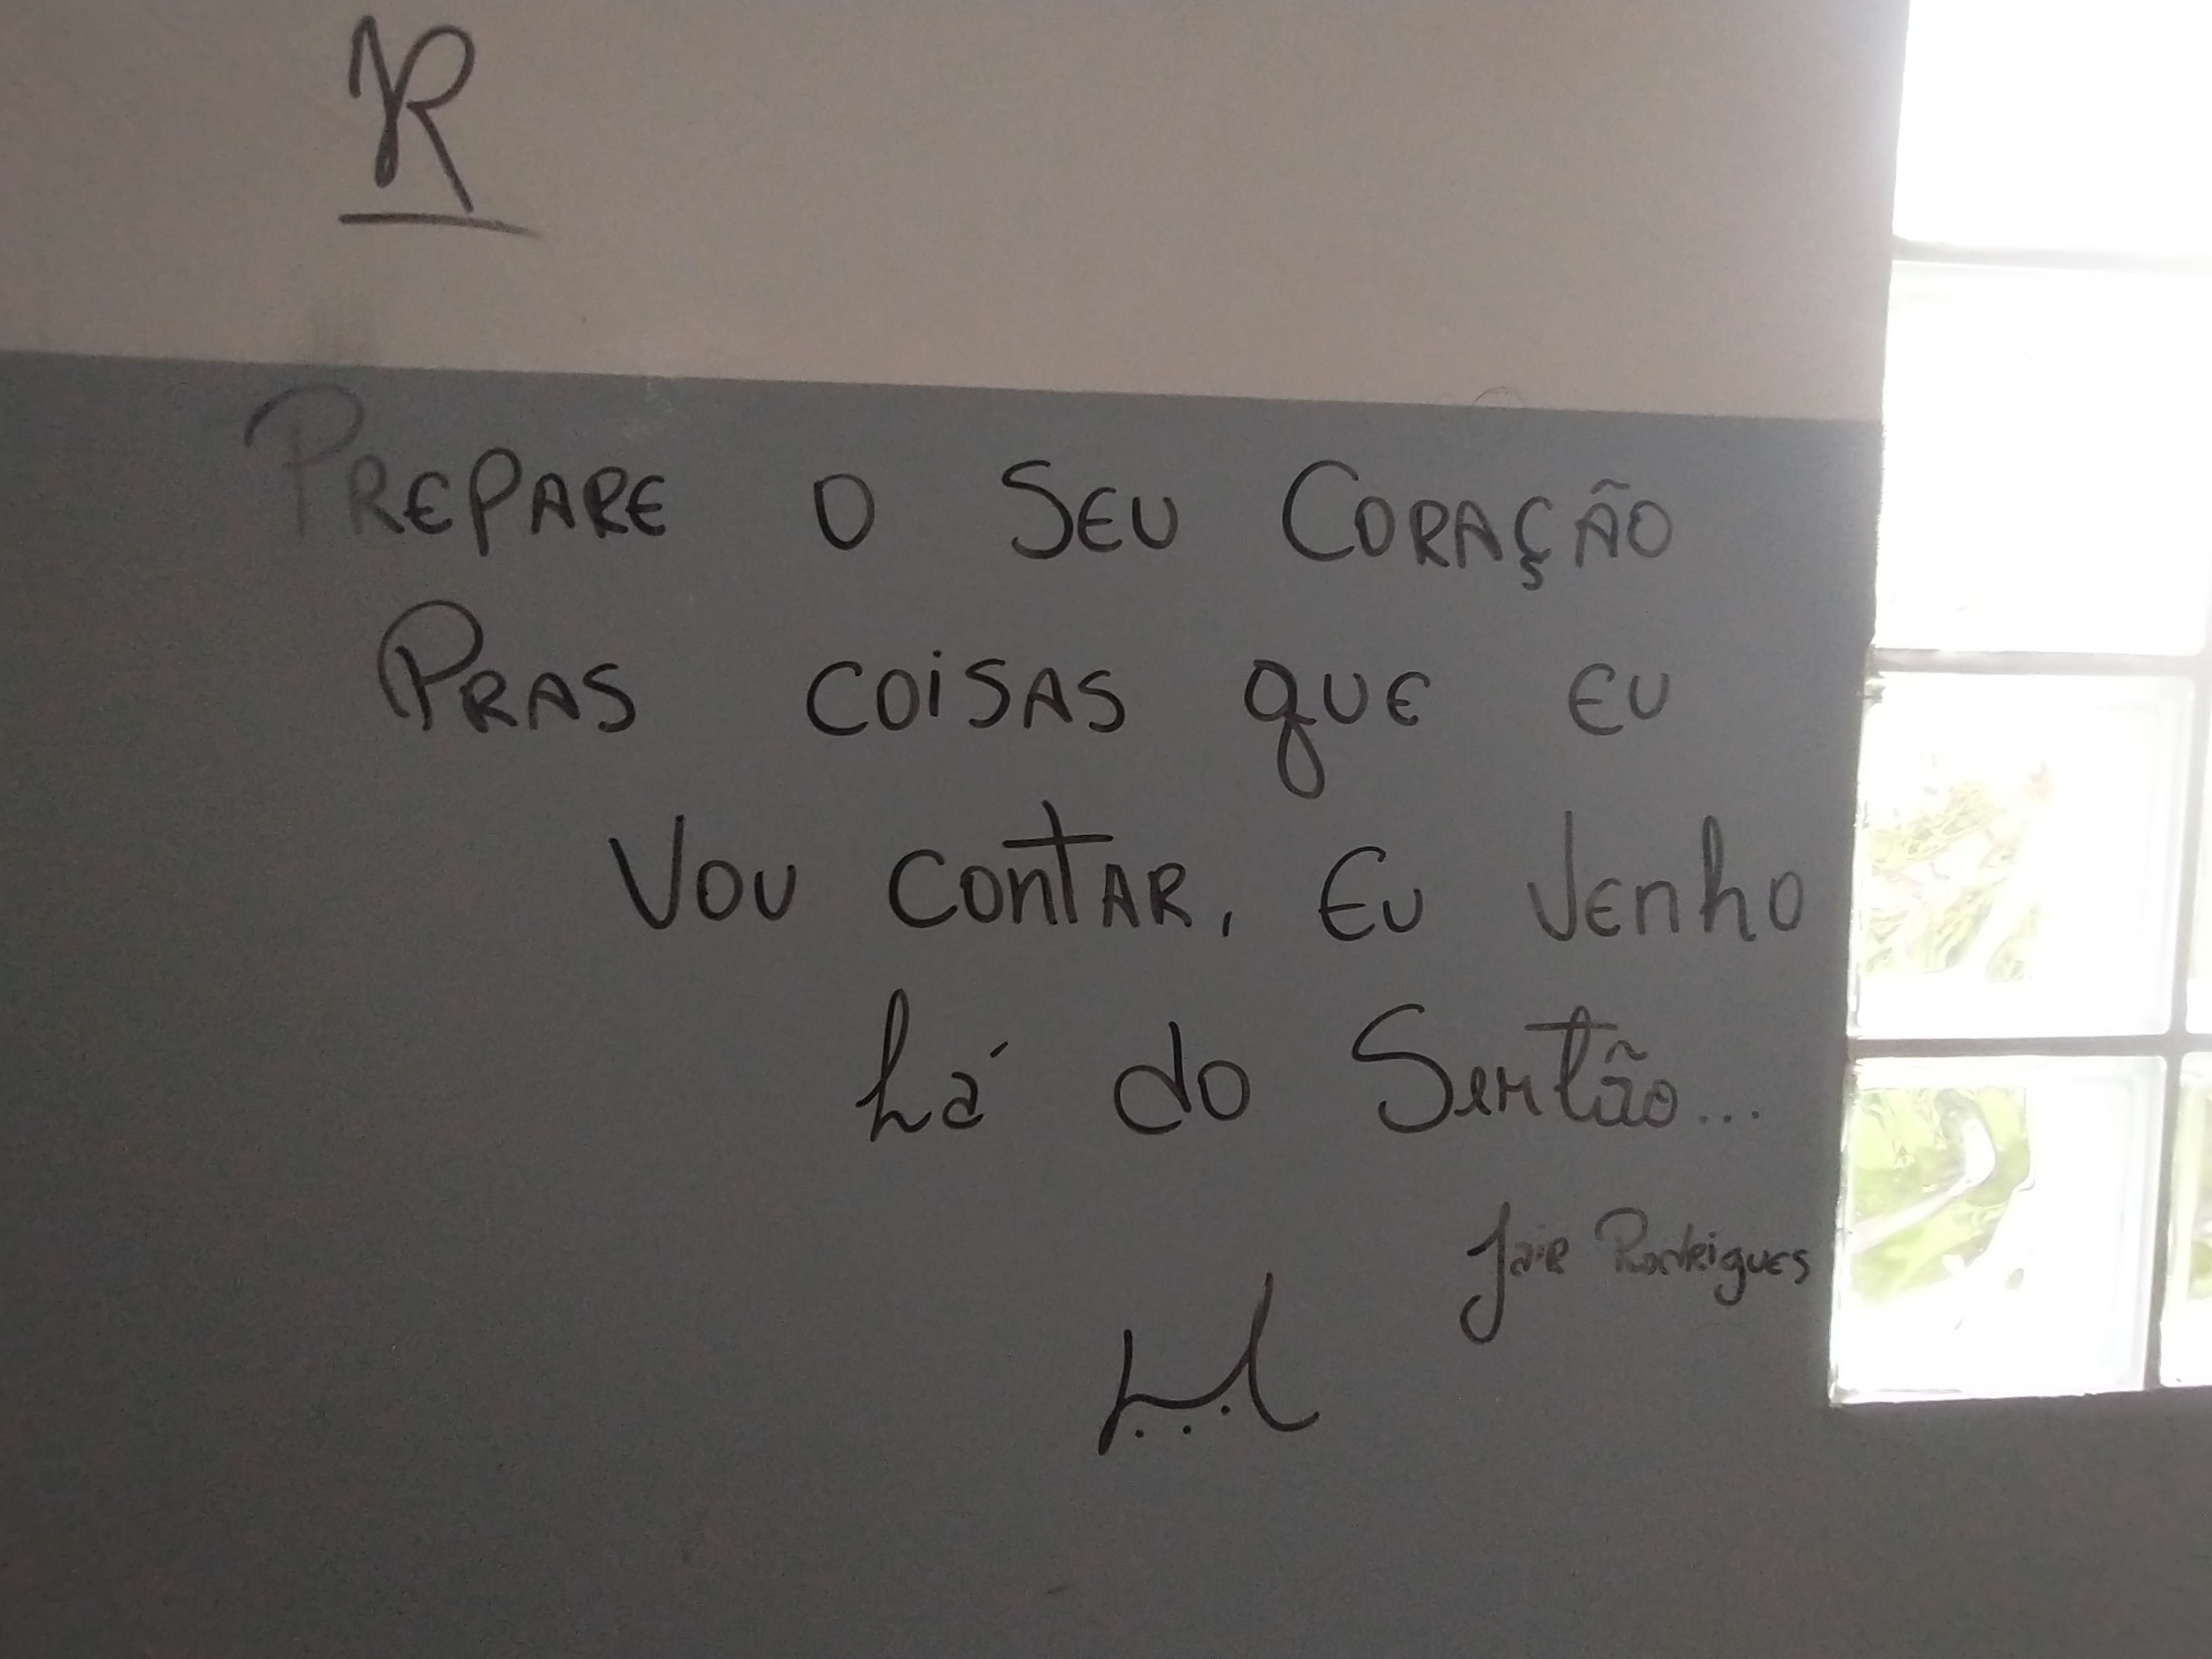 R
PREPARE O SEU CORAÇÃO
PRAS COISAS QUE EU
VOU CONTAR, EU VENHO
Lá do Sertão...
Jair Rodrigues